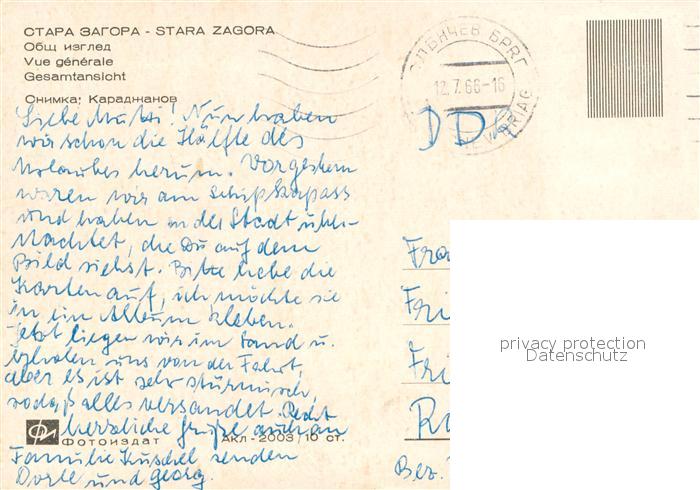 СТАРА ЗАГОРА - STARA ZAGORA
Общ изглед
Vue générale
Gesamtansicht
Снимка: Караджанов
Liebe Mutti! Nun haben
wir schon die Hälfte des
Urlaubes herum. Vorgestern
waren wir am Schipkapass
und haben in der Stadt über-
nachtet, die Du auf dem
Bild siehst. Bitte hebe die
Karten auf, ich möchte sie
in ein Album kleben.
Jetzt liegen wir im Sand u.
erholen uns von der Fahrt,
aber es ist sehr stürmisch,
sodaß alles versandet. Recht
herzliche Grüße auch an
Familie Kuschel senden
Dorle und Georg.
ФОТОИЗДАТ
АКЛ-2003/10 ст.
СЛЪНЧЕВ БРЯГ
12.7.66-16
BRIAG
DDR
Fra
Fri
Fri
Bez.
privacy protection
Datenschutz